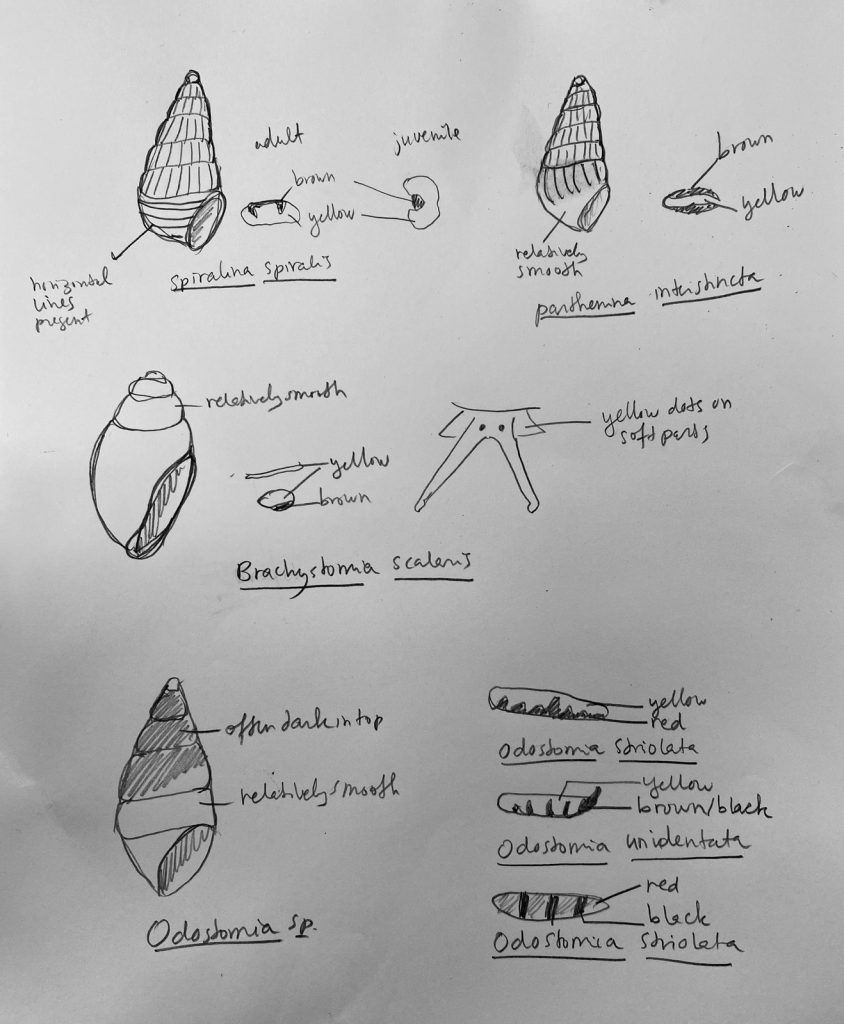 adult
juvenile
brown
yellow
horizontal
lines
present
spiralina spiralis
brown
yellow
relatively
smooth
parthenina interstincta
relatively smooth
yellow
brown
yellow dots on
soft parts
Brachystomia scalaris
often dark in top
relatively smooth
Odostomia sp.
yellow
red
Odostomia striolata
yellow
brown/black
Odostomia unidentata
red
black
Odostomia striolata